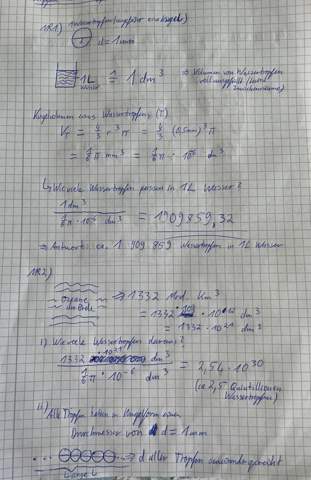 1R1) Wassertropfen (ungefähr eine Kugel)
d = 1mm
1L Wasser ≙ 1 dm³ ⇒ Volumen von Wassertropfen
Kugelvolumen eines Wassertropfens (T)
V_T = 4/3 r³ π = 4/3 (0,5mm)³ π
= 1/6 π mm³ = 1/6 π · 10⁻⁶ dm³
↳ Wie viele Wassertropfen passen in 1L Wasser?
1dm³ / (1/6 π · 10⁻⁶ dm³) = 1909859,32
⇒ Antwort: ca. 1 909 859 Wassertropfen in 1L Wasser
1R2)
Ozeane der Erde ⇒ 1332 Mrd. Km³
= 1332 · 10⁹ · 10¹² dm³
= 1332 · 10²¹ dm³
i) Wie viele Wassertropfen daraus?
1332 · 10²¹ dm³ / (1/6 π · 10⁻⁶ dm³) = 2,54 · 10³⁰
(ca 2,5 Quintillionen Wassertropfen)
ii) Alle Tropfen haben in Kugelform einen
Durchmesser von d = 1mm
⇒ d aller Tropfen aneinandergereiht
Länge L